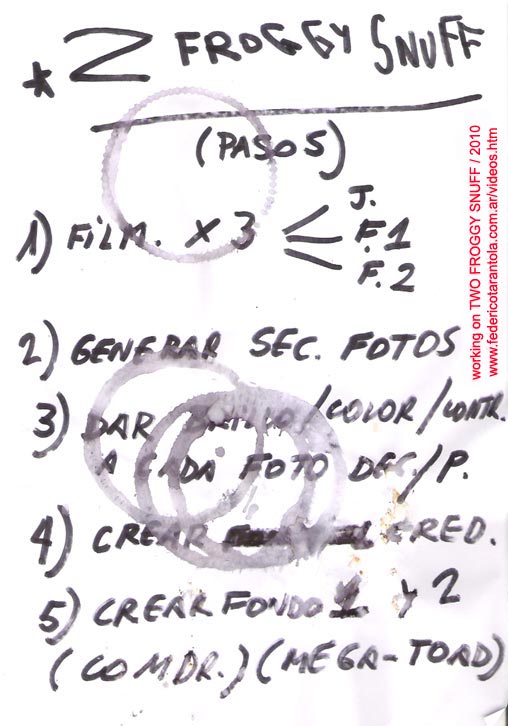 * 2 FROGGY SNUFF
(PASOS)
1) FILM. X 3 < J.
F.1
F.2
2) GENERAR SEC. FOTOS
3) DAR BRILLO/COLOR/CONTR.
A CADA FOTO DEC./P.
4) CREAR CRED.
5) CREAR FONDO 1 y 2
(COMDR.) (MEGA-TOAD)
working on TWO FROGGY SNUFF / 2010
www.federicotarantola.com.ar/videos.htm